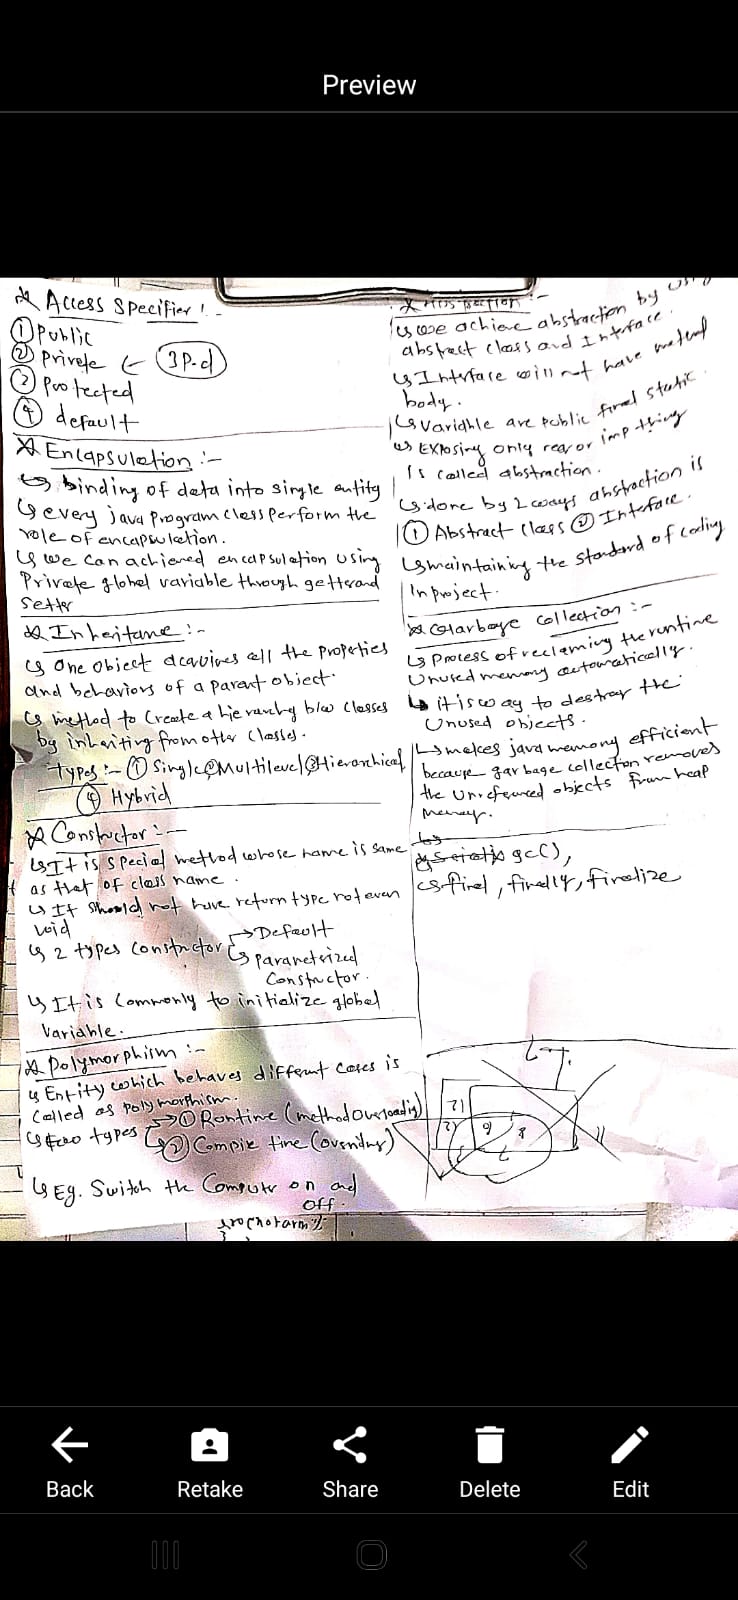 Preview
Access Specifier :-
① Public
② Private ← 3P-d
③ Protected
④ default
Encapsulation :-
binding of data into single entity
every java program class perform the
role of encapsulation.
we can achieved encapsulation using
Private global variable through getter and
setter
Inheritance :-
One object acquires all the properties
and behaviors of a parent object.
method to create a hierarchy b/w classes
by inheriting from other classes.
types :- ① Single ② Multilevel ③ Hierarchical
④ Hybrid
Constructor :-
It is special method whose name is same
as that of class name.
It should not have return type not even
void
2 types constructor → Default
parametrized
Constructor.
It is commonly to initialize global
Variable.
Polymorphism :-
Entity which behaves different cases is
called as polymorthism.
two types → ① Runtime (method Overloading)
② Compile time (overriding)
Eg. Switch the Computer on and
off.
:-
we achieve abstraction by using
abstract class and Interface.
Interface will not have method
body.
Variable are public final static.
Exposing only imp thing
is called abstraction.
done by 2 ways abstraction is
① Abstract class ② Interface.
maintaining the standard of coding
in project.
Garbage collection :-
Process of reclaming the runtime
Unused memory automatically.
it is way to destroy the
Unused objects.
makes java memory efficient
because garbage collection removes
the unrefrenced objects from heap
memory.
gc(),
final, finally, finalize
Back
Retake
Share
Delete
Edit